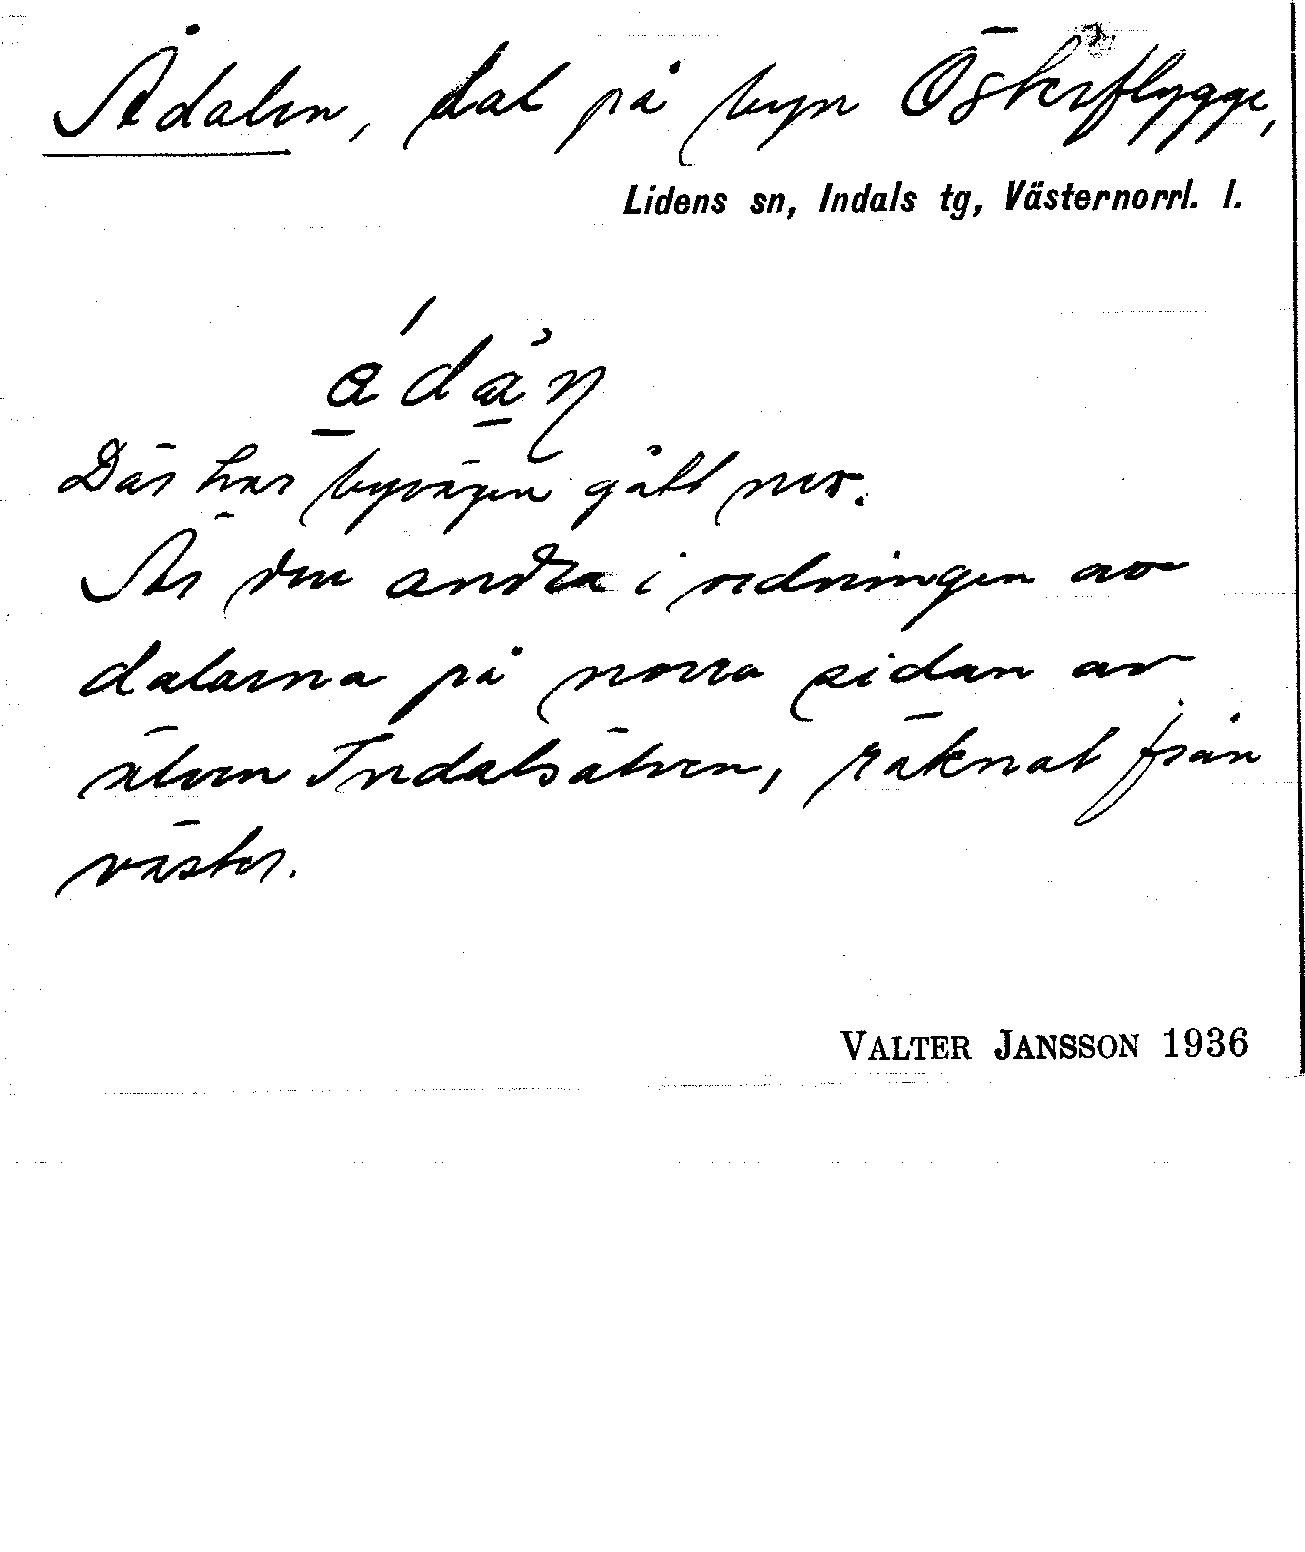 Ådalen, dal på byn Österflygge,
Lidens sn, Indals tg, Västernorrl. l.
Där har byvägen gått ner.
Är den andra i ordningen av
dalarna på norra sidan av
älven Indalsälven, räknat från
väster.
VALTER JANSSON 1936